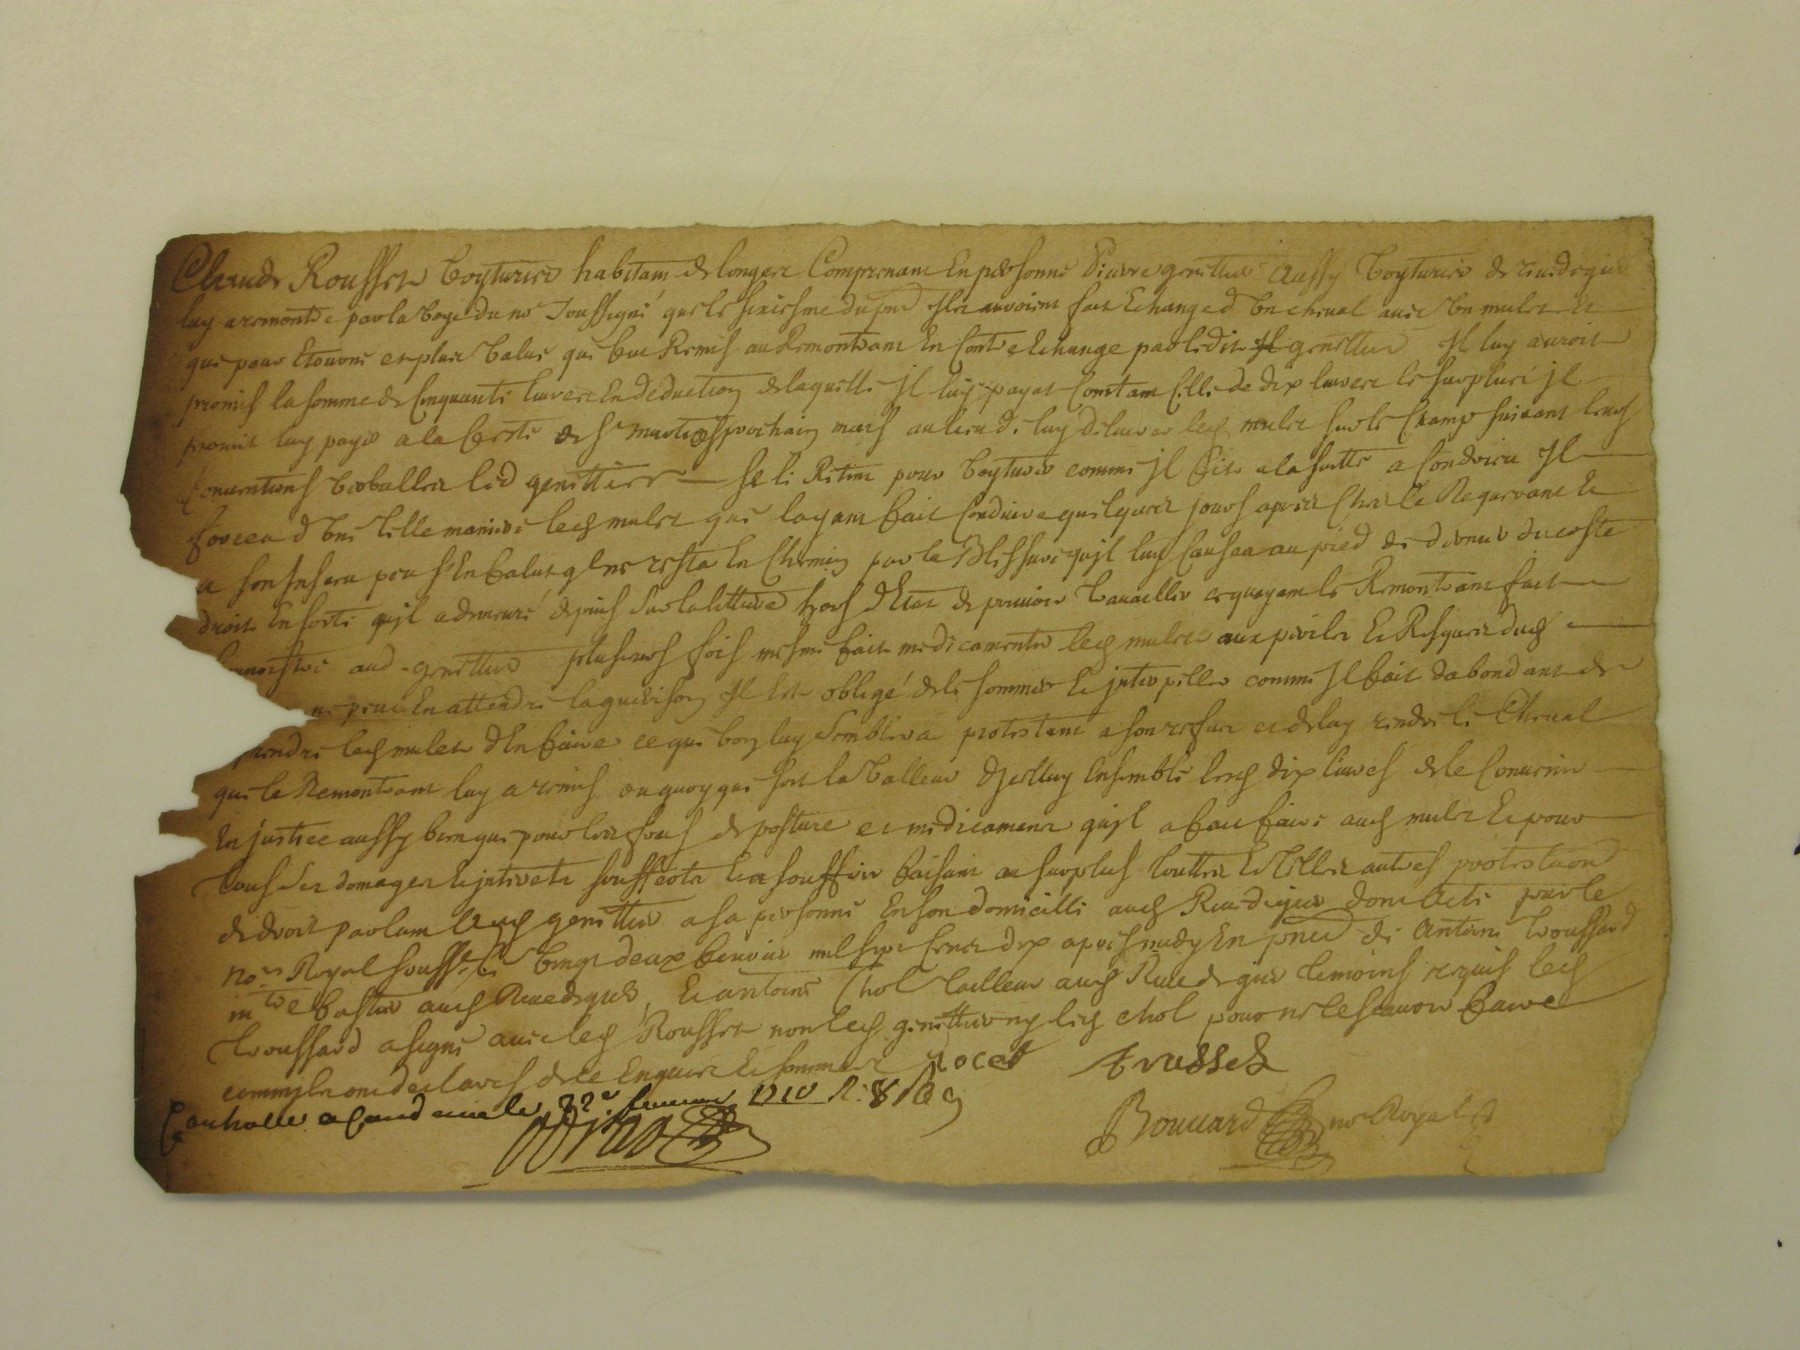 Claude Rousset voyturier habitant de longes Comprenant En personne Pierre genettier Aussy voyturier de rivedegier
luy a remontré par la voye du no.re soussigné que le seiziesme du pnt Ils auroient fait Echange d vn cheual auec vn mulet et
que pour Etourne et plus value qui fut Remis au Remontrant En Contre Echange par ledit genettier Il luy auroit
promis la somme de Cinquante liures En déduction de laquelle Il luy paya Contant Celle de dix liures le surplus Il
promit luy payer a la feste de St martin prochain mais au lieu de luy deliurer led mulet sur le Champ suiuant leurs
Conuentions verballes led genettier se le Retint pour voyturer comme Il fit a la suitte a Condrieu Il
força d vne telle maniere led mulet que layant fait Conduire quelques jours apres Chez le Requerant et
a son Insceu peu s'En falut qlne resta En Chemin par la Blessure qu'jl luy Causa au pied de deuant du costé
droit En sorte qujl a demeuré depuis sur la littiere hors d'Etat de pouuoir trauailler ce quayant le Remontrant fait
connoistre aud genettier plusieurs fois mesme fait medicamenter led mulet aux perils Et Risques dud
ne peut En attendre la guerison Il Est obligé de le sommer Et jnterpeller comme Il fait dabondant de
prendre led mulet d'En faire ce que bon luy semblera protestant a son refus et de luy rendre le Cheual
que le Remontrant luy a remis ou quoy que soit la valleur d'jcelluy Ensemble lesd dix liures de le Conuenir
En justice aussy bien que pour les frais de posture et medicament qujl a fait faire aud mulet Et pour
tous ses domages Et jnterets soufferts Et a souffrir faisant au surplus touttes Et telles autres protestaons
de droit parlant aud genettier a sa personne En son domicille aud Riuedegier dont acte par le
no.re Royal soussé. Ce vingt deux feurier mil sept Cent dix apres midy En pnce de Antoine troussard
m.tre bastier aud Riuedegier, Et antoine Chol tailleur aud Riuedegier temoins requis led
troussard a signé auec led Rousset non led genettier ny led chol pour ne le scauoir faire
comme jls ont declaré de ce Enquis Et sommés Rocet trussel
Controllé a 22e feurier 1710 R: 8
Bouuard no.re Royal